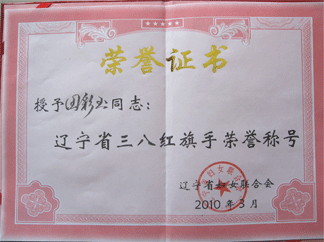 荣誉证书
授予同志：
辽宁省三八红旗手荣誉称号
辽宁省妇女联合会
2010年3月